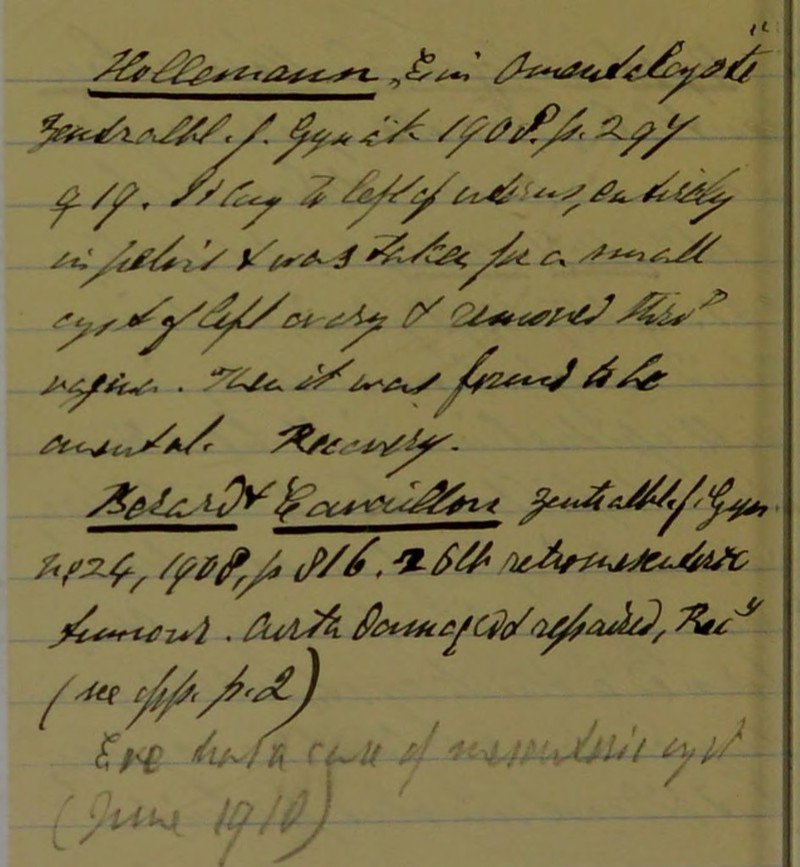 Hollemann, "Ein Omentalcyste"
Zentralbl. f. Gynäk. 1908. p. 294
♀ 19. It lay to left of uterus, entirely
in pelvis & was taken for a small
cyst of left ovary & removed thro'
vagina. Then it was found to be
omental. Recovery.
Berard & Cavaillon Zentralbl f. Gyn
No 24, 1908, p 816. 26lb retromesenteric
tumour. Aorta damaged & repaired, Recy
(see opp. p. 2)
Eve had a case of mesenteric cyst
(June 1910)